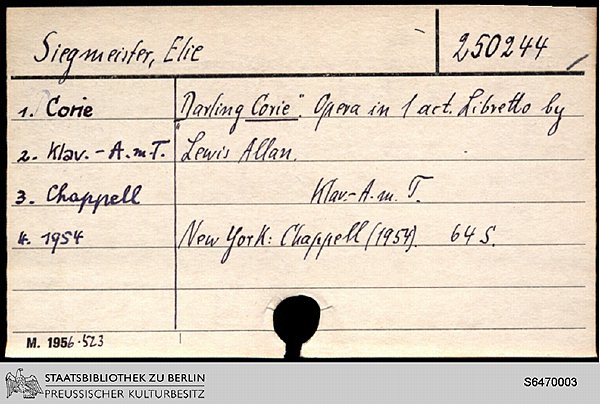 Siegmeister, Elie 250244
1. Corie "Darling Corie". Opera in 1 act. Libretto by
2. Klav.-A.m.T. Lewis Allan.
3. Chappell Klav.-A.m.T.
4. 1954 New York: Chappell (1954). 64 S.
M. 1956.523
STAATSBIBLIOTHEK ZU BERLIN
PREUSSISCHER KULTURBESITZ
S6470003